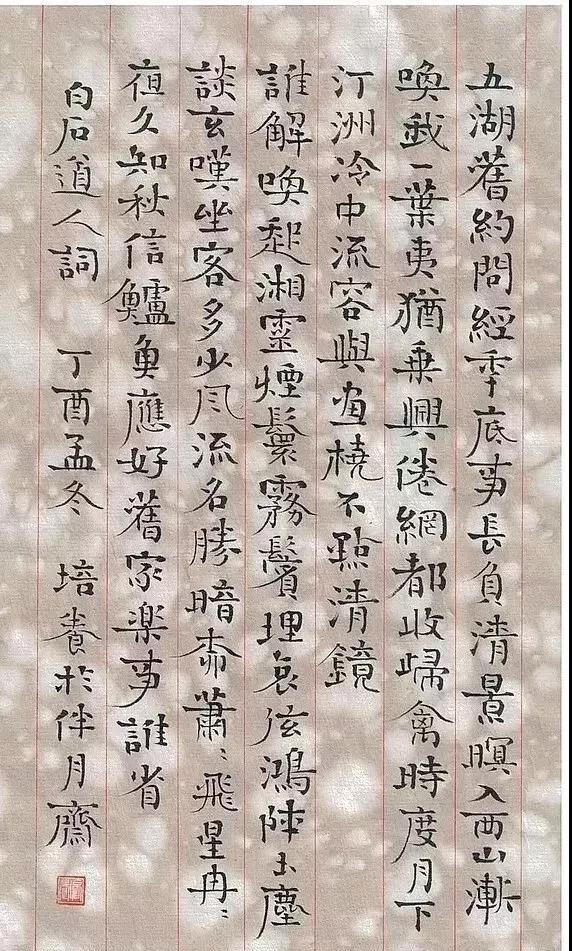 五湖舊約問經年底事長負清景暝入西山漸
喚我一葉夷猶乗興倦網都收歸禽時度月下
汀洲冷中流容與畫橈不點清鏡
誰解喚起湘靈煙鬟霧鬢理哀弦鴻陣玉麈
談玄嘆坐客多少風流名勝暗柳蕭〻飛星冉〻
夜久知秋信鱸魚應好舊家樂事誰省
白石道人詞 丁酉孟冬 培養於伴月齋